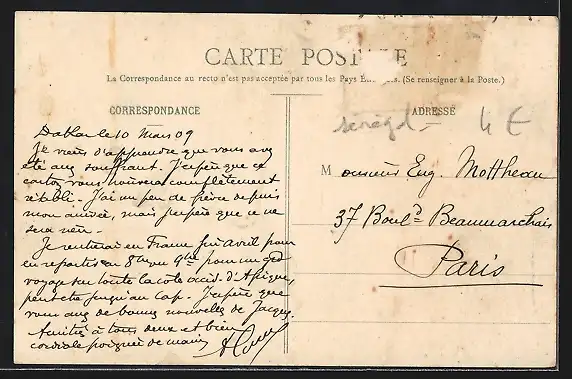 CARTE POSTALE
La Correspondance au recto n'est pas acceptée par tous les Pays Étrangers. (Se renseigner à la Poste.)
CORRESPONDANCE
ADRESSE
Sénégal 4 €
Dakar le 10 Mars 09
Je viens d'apprendre que vous avez
été aussi souffrant. J'espère que ce
cartoz vous trouvera complètement
rétabli. J'ai un peu de fièvre depuis
mon arrivée, mais j'espère que ce ne
sera rien.
Je rentrerai en France fin avril pour
en repartir en 8bre ou 9bre pour un gd
voyage sur toute la côte occid. d'Afrique,
peut-être jusqu'au Cap. J'espère que
vous avez de bonnes nouvelles de Jacques.
Amitiés à tous deux et bien
cordiale poignée de main
Monsieur Eug. Mottheau
37 Boul.d Beaumarchais
Paris